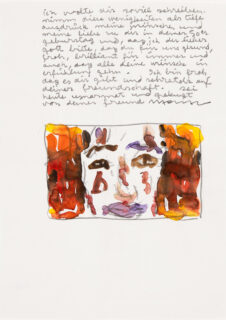 ich wollte dir soviel schreiben.
nimm diese wenigkeiten als tief
ausdruck meine und
meine liebe zu dir in deinen Geb
geburtstag und, dass ich der lieber
gott bitte, dass du für uns gesund,
froh, brilliant für immer und
auch, dass alle deine wünsche in
erfüllung gehn. Ich bin froh,
dass es dir gibt und
deiner freundschaft. sei
heute umarmet und geküsst
von deiner freund